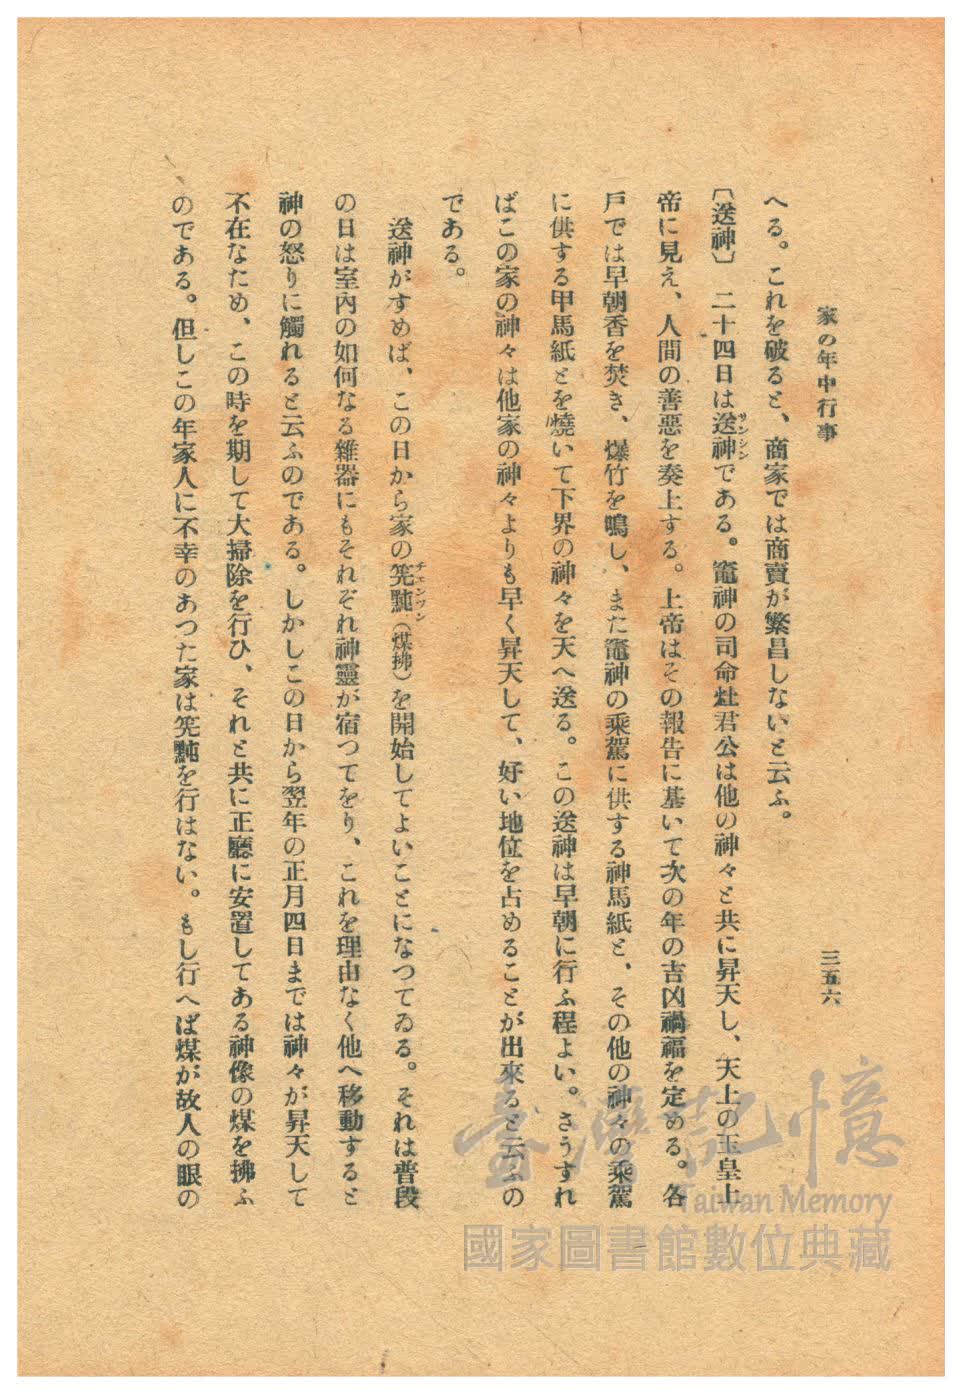 家の年中行事
三五六
へる。これを破ると、商家では商賣が繁昌しないと云ふ。
〔送神〕　二十四日は送神である。竈神の司命灶君公は他の神々と共に昇天し、天上の玉皇上
サンシン
帝に見え、人間の善惡を奏上する。上帝はその報告に基いて次の年の吉凶禍福を定める。各
戶では早朝香を焚き、爆竹を鳴し、また竈神の乘駕に供する神馬紙と、その他の神々の乘駕
に供する甲馬紙とを燒いて下界の神々を天へ送る。この送神は早朝に行ふ程よい。さうすれ
ばこの家の神々は他家の神々よりも早く昇天して、好い地位を占めることが出來ると云ふの
である。
送神がすめば、この日から家の筅黗（煤拂）を開始してよいことになつてゐる。それは普段
チエンツン
の日は室內の如何なる雜器にもそれぞれ神靈が宿つてをり、これを理由なく他へ移動すると
神の怒りに觸れると云ふのである。しかしこの日から翌年の正月四日までは神々が昇天して
不在なため、この時を期して大掃除を行ひ、それと共に正廳に安置してある神像の煤を拂ふ
のである。但しこの年家人に不幸のあつた家は筅黗を行はない。もし行へば煤が故人の眼の
臺灣記憶
Taiwan Memory
國家圖書館數位典藏